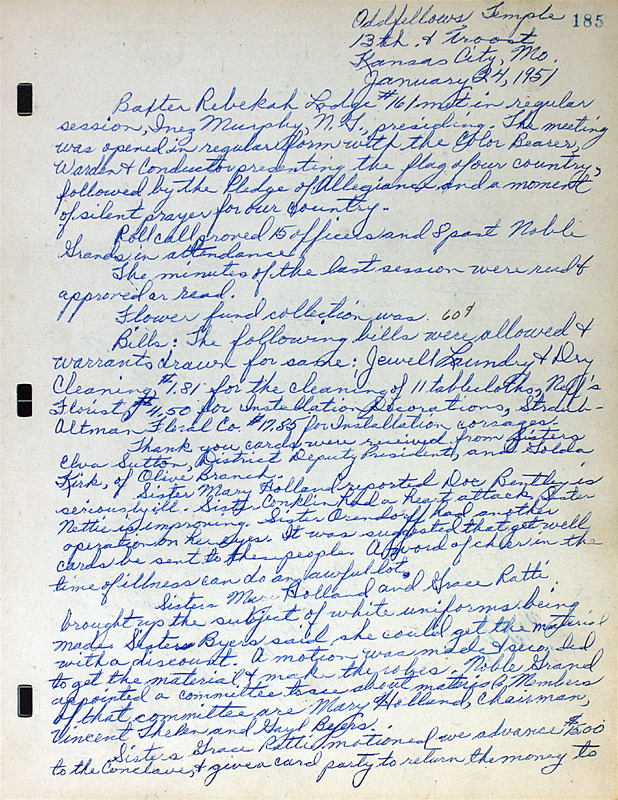 Oddfellows Temple 185
13th. & Troost
Kansas City, Mo.
January 24, 1951
Baxter Rebekah Lodge #161 met in regular
session, Inez Murphy, N.G., presiding. The meeting
was opened in regular form with the Color Bearer,
Warden & Conductor presenting the flag of our country,
followed by the Pledge of Allegiance and a moment
of silent prayer for our country.
Roll call proved 15 officers and 8 past Noble
Grands in attendance.
The minutes of the last session were read &
approved as read.
Flower fund collection was 60¢
Bills: The following bills were allowed &
warrants drawn for same; Jewell Laundry & Dry
Cleaning $1.81 for the cleaning of 11 tablecloths, Nell's
Florist $11.50 for Installation Decorations, Straub-
Altman Floral Co. $17.85 for Installation corsages.
Thank you cards were received from Sisters
Elva Sutton, District Deputy President, and Golda
Kirk, of Olive Branch.
Sister Mary Holland reported Doc Bentley is
seriously ill. Sister Conklin had a heart attack, Sister
Nettie is improving. Sister Orendorff had another
operation on her eyes. It was suggested that get well
cards be sent to these people. A word of cheer in the
time of illness can do an awful lot.
Sisters Mary Holland and Grace Ratti
brought up the subject of white uniforms being
made. Sisters Byers said she could get the material
with a discount. A motion was made & seconded
to get the material & make the robes. Noble Grand
appointed a committee to see about material. Members
of that committee are Mary Holland, Chairman,
Vincent Thelen and Gayl Byers.
Sisters Grace Ratti motioned we advance $5.00
to the Conclave, & give a card party to return the money to